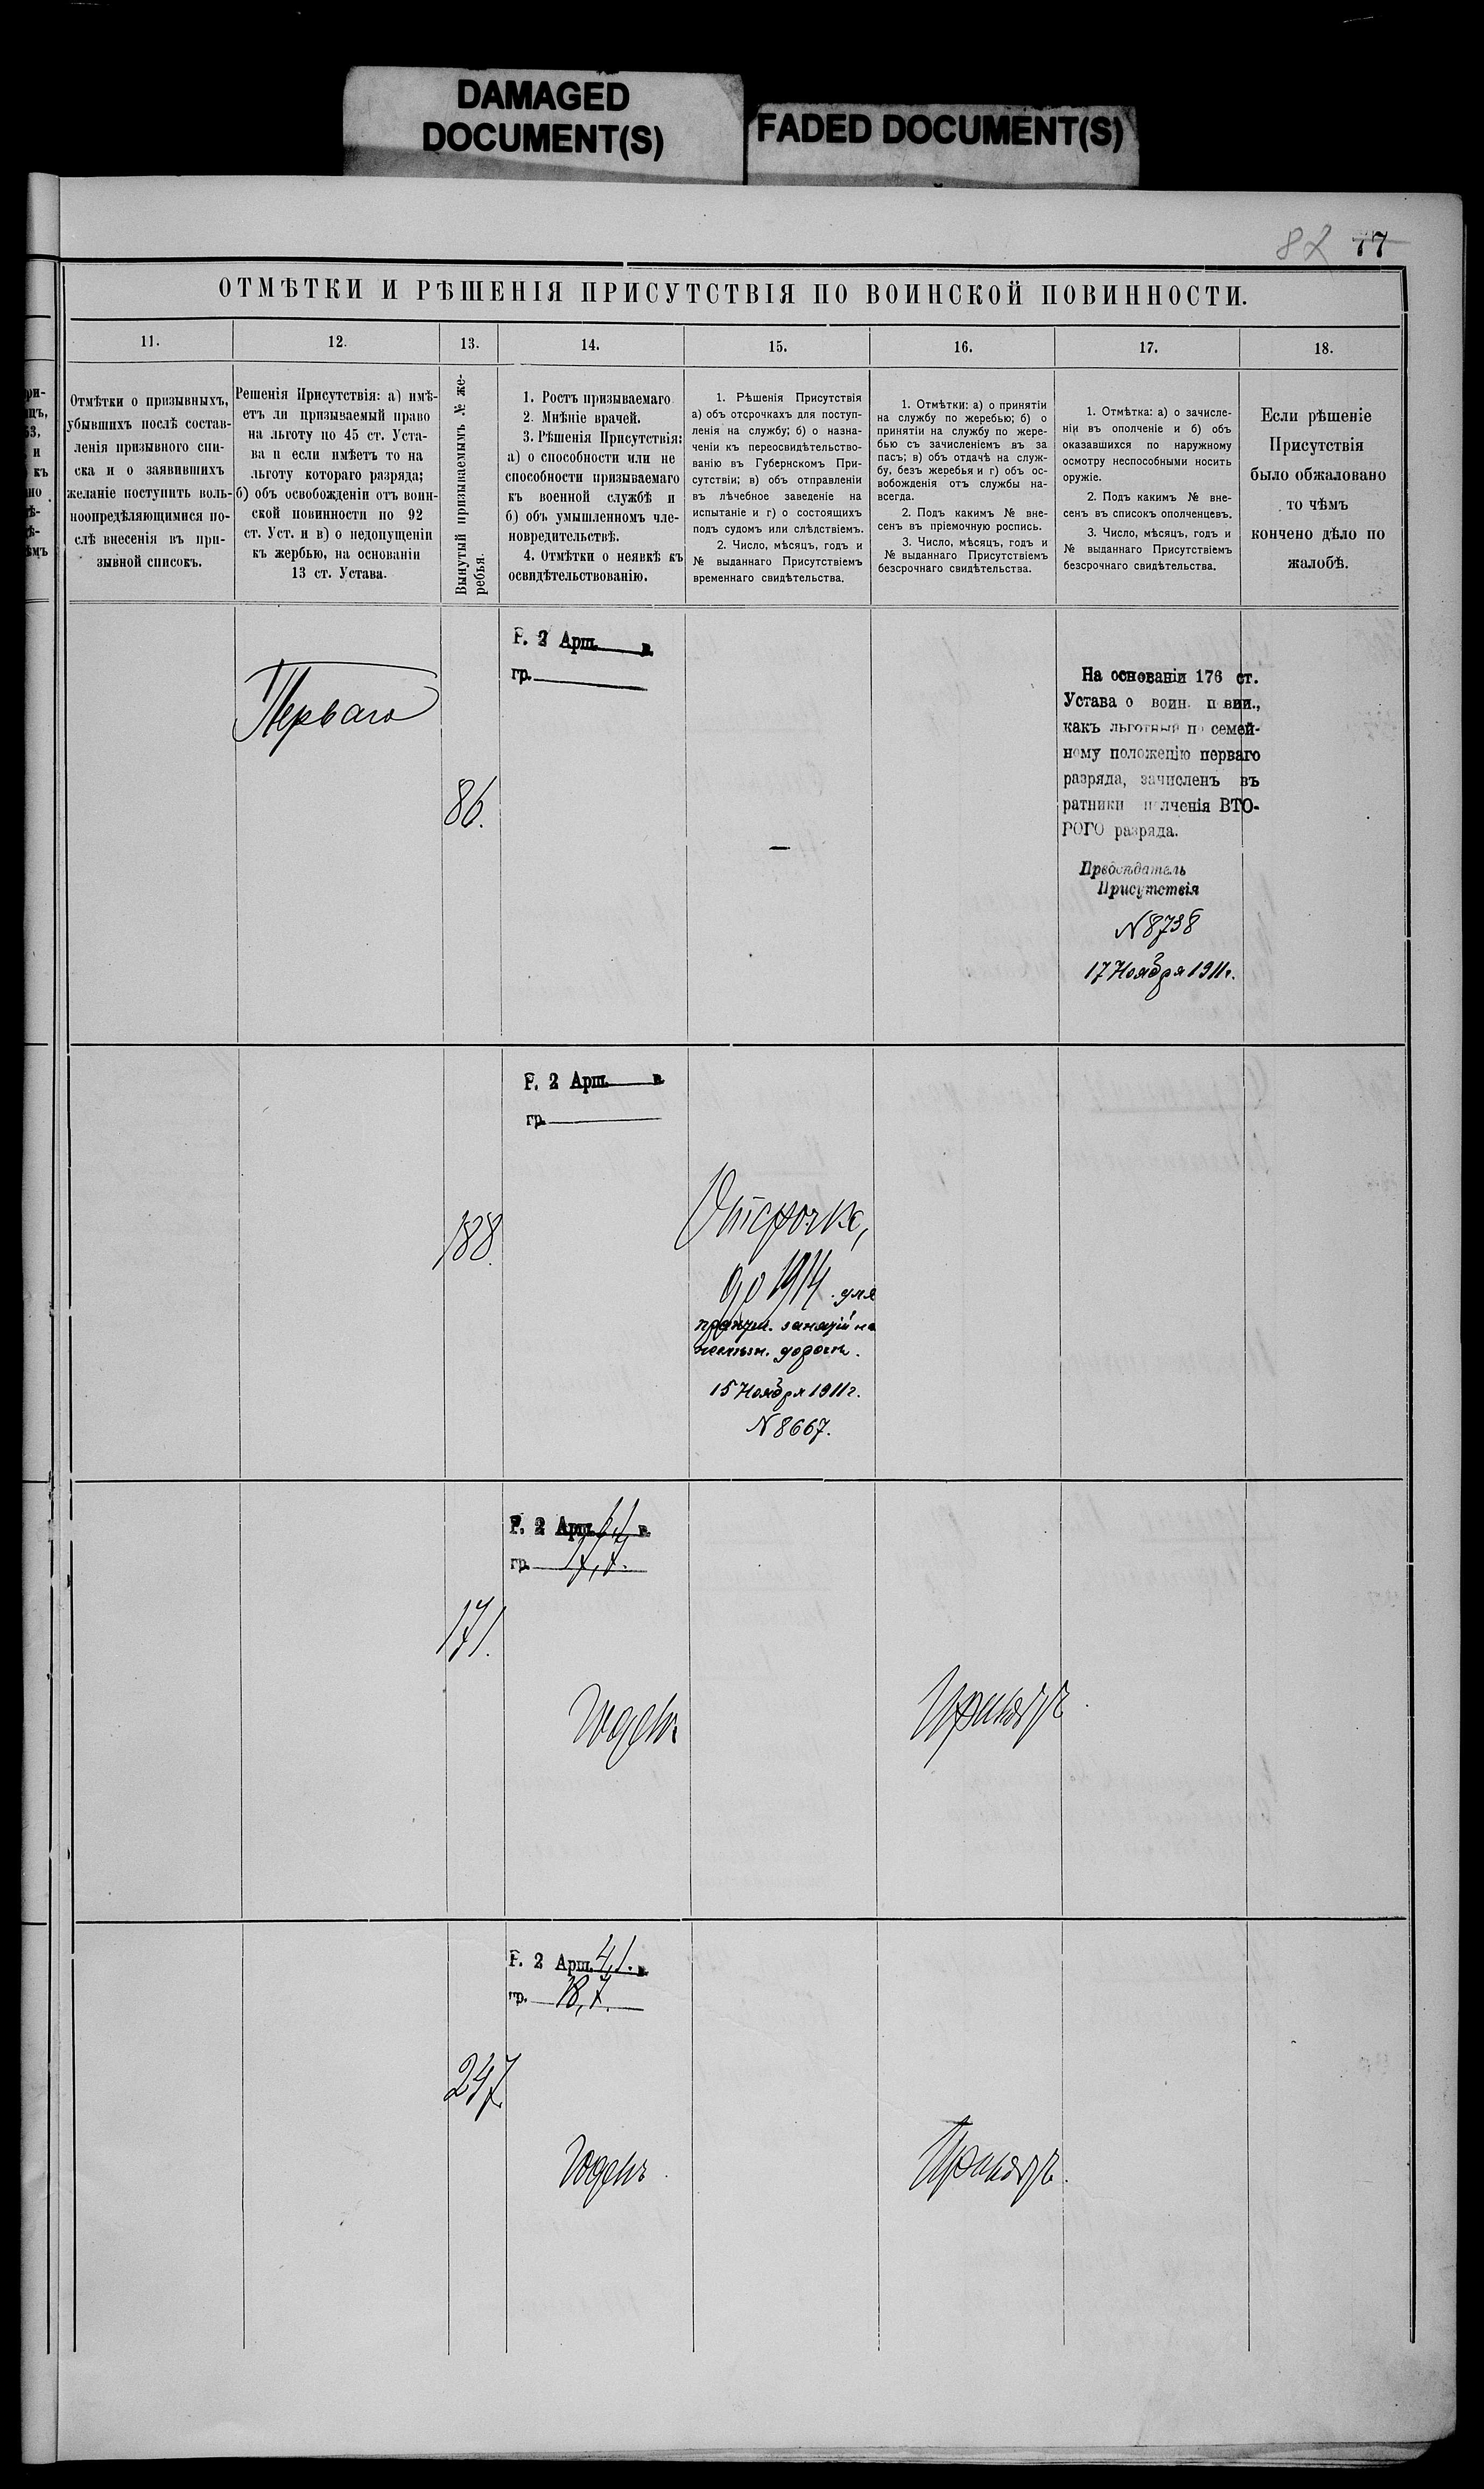 DAMAGED
DOCUMENT(S)
FADED DOCUMENT(S)
82 77
ОТМѢТКИ И РѢШЕНІЯ ПРИСУТСТВІЯ ПО ВОИНСКОЙ ПОВИННОСТИ.
11.
12.
13.
14.
15.
16.
17.
18.
Отмѣтки о призывныхъ,
убывшихъ послѣ состав-
ленія призывного спи-
ска и о заявившихъ
желаніе поступить воль-
ноопредѣляющимися по-
слѣ внесенія въ при-
зывной списокъ.
Решенія Присутствія: а) имѣ-
етъ ли призываемый право
на льготу по 45 ст. Уста-
ва и если имѣетъ то на
льготу котораго разряда;
б) объ освобожденіи отъ воин-
ской повинности по 92
ст. Уст. и в) о недопущеніи
къ жербью, на основаніи
13 ст. Устава.
Вынутый призываемымъ № же-
ребья.
1. Ростъ призываемаго
2. Мнѣніе врачей.
3. Рѣшенія Присутствія:
а) о способности или не
способности призываемаго
къ военной службѣ и
б) объ умышленномъ чле-
новредительствѣ.
4. Отмѣтки о неявкѣ къ
освидѣтельствованію.
1. Рѣшенія Присутствія
а) объ отсрочкахъ для поступ-
ленія на службу; б) о назна-
ченіи къ переосвидѣтельство-
ванію въ Губернскомъ При-
сутствіи; в) объ отправленіи
въ лѣчебное заведеніе на
испытаніе и г) о состоящихъ
подъ судомъ или слѣдствіемъ.
2. Число, мѣсяцъ, годъ и
№ выданнаго Присутствіемъ
временнаго свидѣтельства.
1. Отмѣтки: а) о принятіи
на службу по жеребью; б) о
принятіи на службу по жере-
бью съ зачисленіемъ въ за
пасъ; в) объ отдачѣ на служ-
бу, безъ жеребья и г) объ ос-
вобожденія отъ службы на-
всегда.
2. Подъ какимъ № вне-
сенъ въ пріемочную роспись.
3. Число, мѣсяцъ, годъ и
№ выданнаго Присутствіемъ
безсрочнаго свидѣтельства.
1. Отмѣтка: а) о зачисле-
ніи въ ополченіе и б) объ
оказавшихся по наружному
осмотру неспособными носить
оружіе.
2. Подъ какимъ № вне-
сенъ въ списокъ ополченцевъ.
3. Число, мѣсяцъ, годъ и
№ выданнаго Присутствіемъ
безсрочнаго свидѣтельства.
Если рѣшеніе
Присутствія
было обжаловано
то чѣмъ
кончено дѣло по
жалобѣ.
Перваго
86.
Р. 2 Арш. в.
гр.
—
На основаніи 176 ст.
Устава о воин. п вин.,
какъ льготный по семей-
ному положенію перваго
разряда, зачисленъ въ
ратники п лченія ВТО-
РОГО разряда.
Предсѣдатель
Присутствія
N 8738
17 Ноября 1911г.
188.
Р. 2 Арш. в.
гр.
Отсрочка,
до 1914. для
практич. занятій на
желѣзн. дорогѣ.
15 Ноября 1911г.
N 8667.
171.
Р. 2 Арш. в.
гр. 17,7.
Годенъ
Принятъ.
247.
Р. 2 Арш. 4,1. в.
гр. 18,7.
Годенъ.
Принятъ.